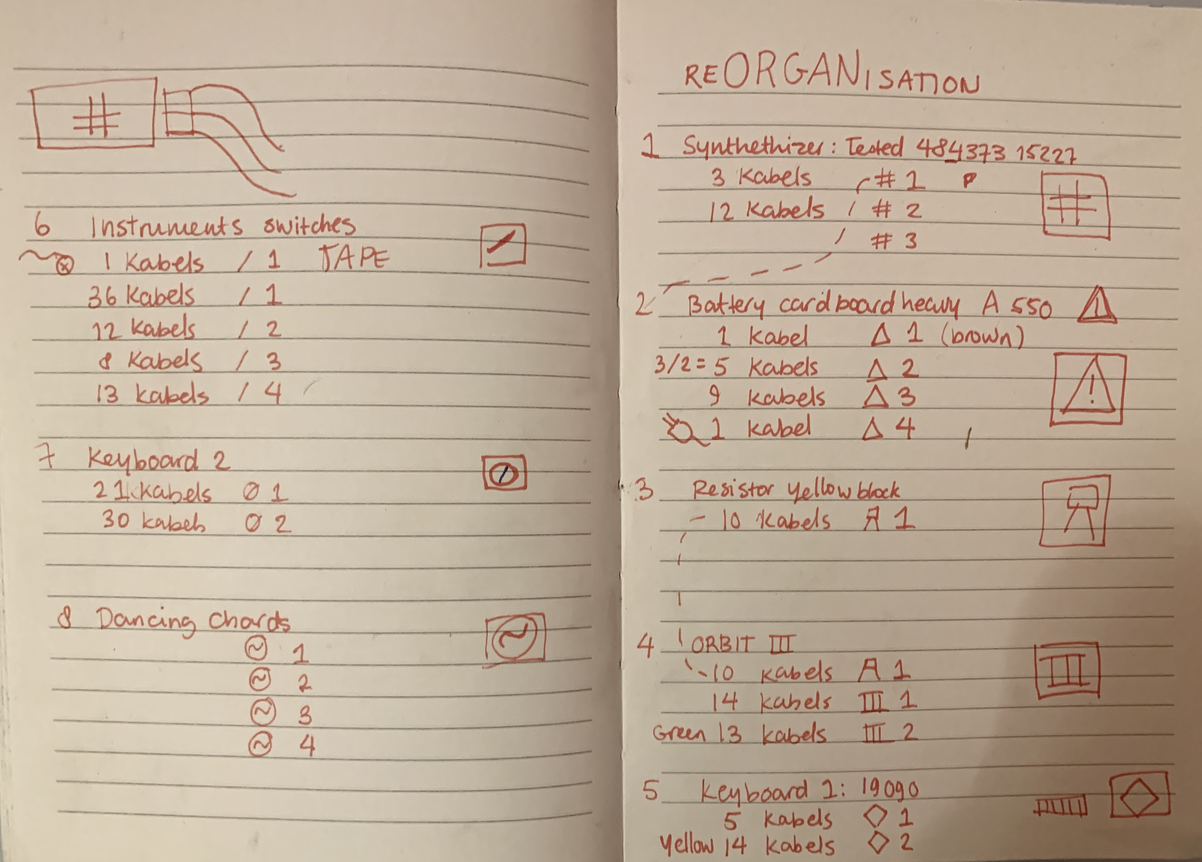 #
6 Instruments switches
1 Kabels / 1 TAPE
36 Kabels / 1
12 Kabels / 2
8 Kabels / 3
13 Kabels / 4
7 Keyboard 2
21 Kabels Ø 1
30 Kabels Ø 2
8 Dancing Chards
~ 1
~ 2
~ 3
~ 4
REORGANISATION
1 Synthethizer: Tested 484373 15227
3 Kabels # 1 P
#
12 Kabels / # 2
/ # 3
2 Battery cardboard heavy A 550 ⚠
1 Kabel △ 1 (brown)
3/2 = 5 Kabels △ 2
!
9 Kabels △ 3
1 Kabel △ 4
3 Resistor yellow block
- 10 Kabels A 1
4 ORBIT III
III
10 Kabels A 1
14 Kabels III 1
Green 13 Kabels III 2
5 Keyboard 1: 19090
5 Kabels ◇ 1
Yellow 14 Kabels ◇ 2